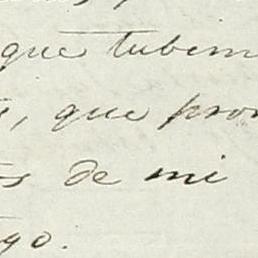 que tubem
, que pron
s de mi
go.